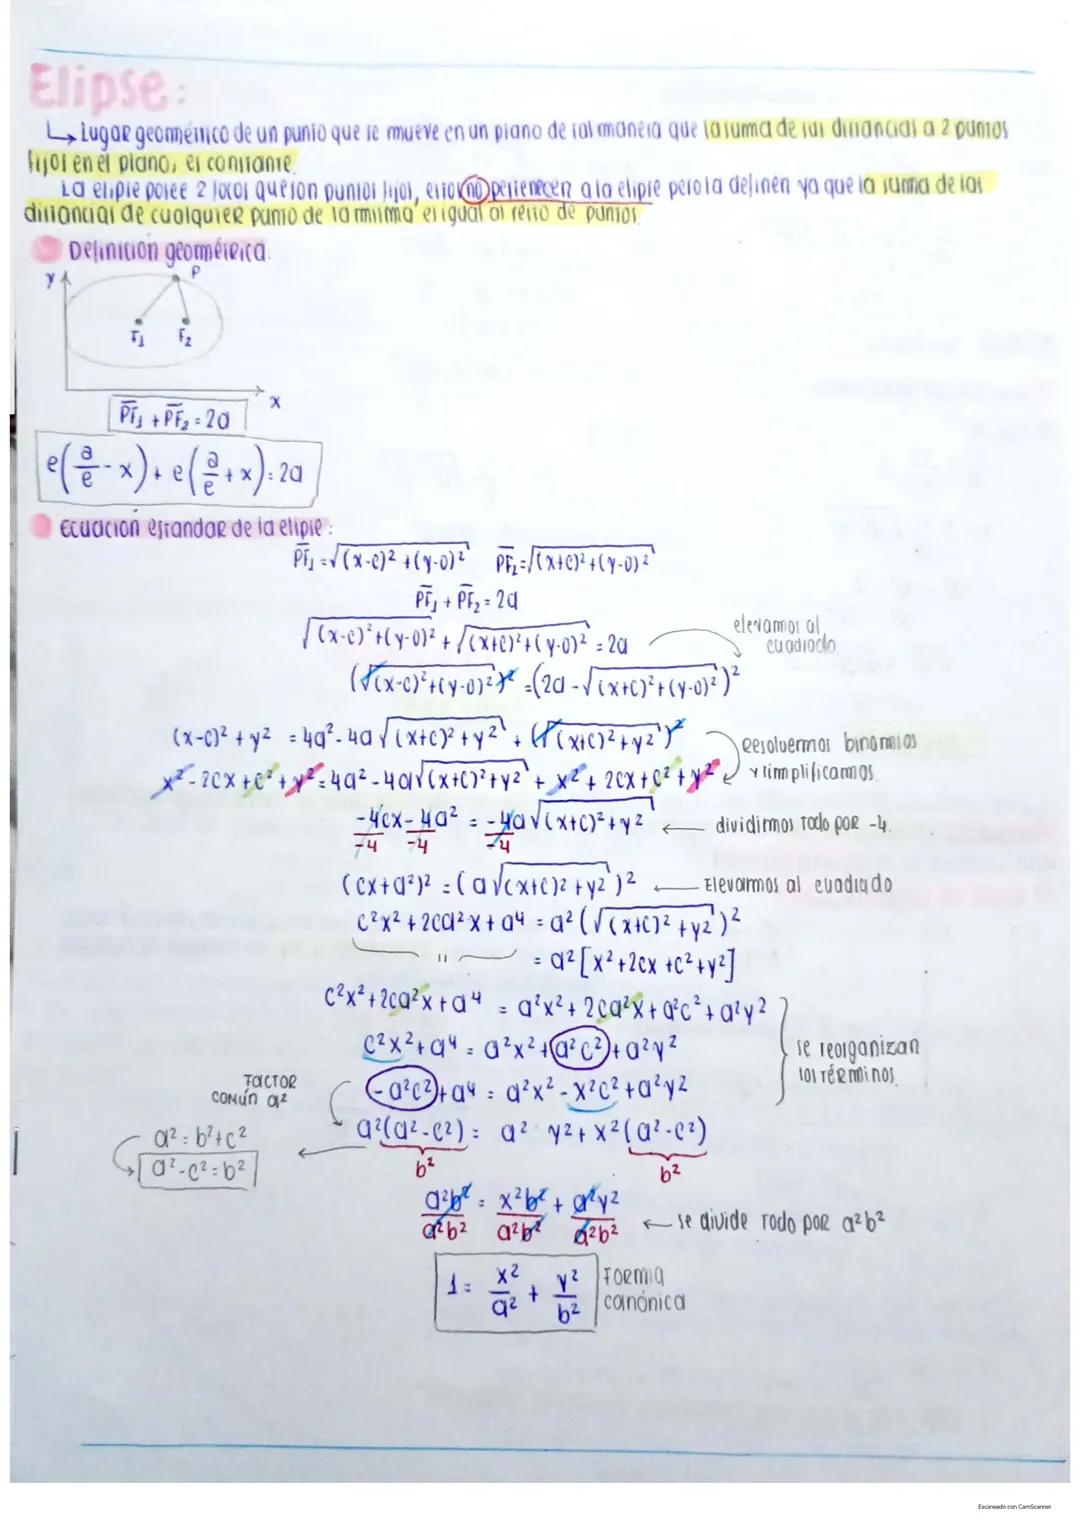 Elipse:
↳ Lugar geométrico de un punto que se mueve en un plano de tal manera que la suma de sus distancias a 2 puntos
fijos en el plano, es constante.
La elipse posee 2 focos que son puntos fijos, estos no pertenecen a la elipse pero la definen ya que la suma de las
distancias de cualquier punto de la misma es igual al resto de puntos.
Definición geométrica:
y P
F₁ F₂
x
PF₁ + PF₂ = 2a
e(a/e - x) + e(a/e + x) = 2a
Ecuación estandar de la elipse:
PF₁ = √(x-c)² + (y-0)² PF₂ = √(x+c)² + (y-0)²
PF₁ + PF₂ = 2a
√(x-c)² + (y-0)² + √(x+c)² + (y-0)² = 2a
elevamos al
cuadrado
(√(x-c)² + (y-0)²)² = (2a - √(x+c)² + (y-0)²)²
(x-c)² + y² = 4a² - 4a√(x+c)² + y² + (√(x+c)² + y²)²
Resolvemos binomios
y simplificamos.
x² - 2cx + c² + y² = 4a² - 4a√(x+c)² + y² + x² + 2cx + c² + y²
-4cx - 4a² = -4a√(x+c)² + y² ← dividimos todo por -4.
-4 -4 -4
(cx + a²)² = (a√(x+c)² + y²)² ← Elevamos al cuadrado
c²x² + 2ca²x + a⁴ = a²(√(x+c)² + y²)²
" = a²[x² + 2cx + c² + y²]
c²x² + 2ca²x + a⁴ = a²x² + 2ca²x + a²c² + a²y²
c²x² + a⁴ = a²x² + a²c² + a²y²
se reorganizan
los términos.
-a²c² + a⁴ = a²x² - x²c² + a²y²
Factor
común a²
a²(a² - c²) = a² y² + x²(a² - c²)
b² b²
a² = b² + c²
a² - c² = b²
a²b² = x²b² + a²y²
a²b² a²b² a²b²
← se divide todo por a²b²
1 = x²/a² + y²/b²
Forma
canónica
Escaneado con CamScanner